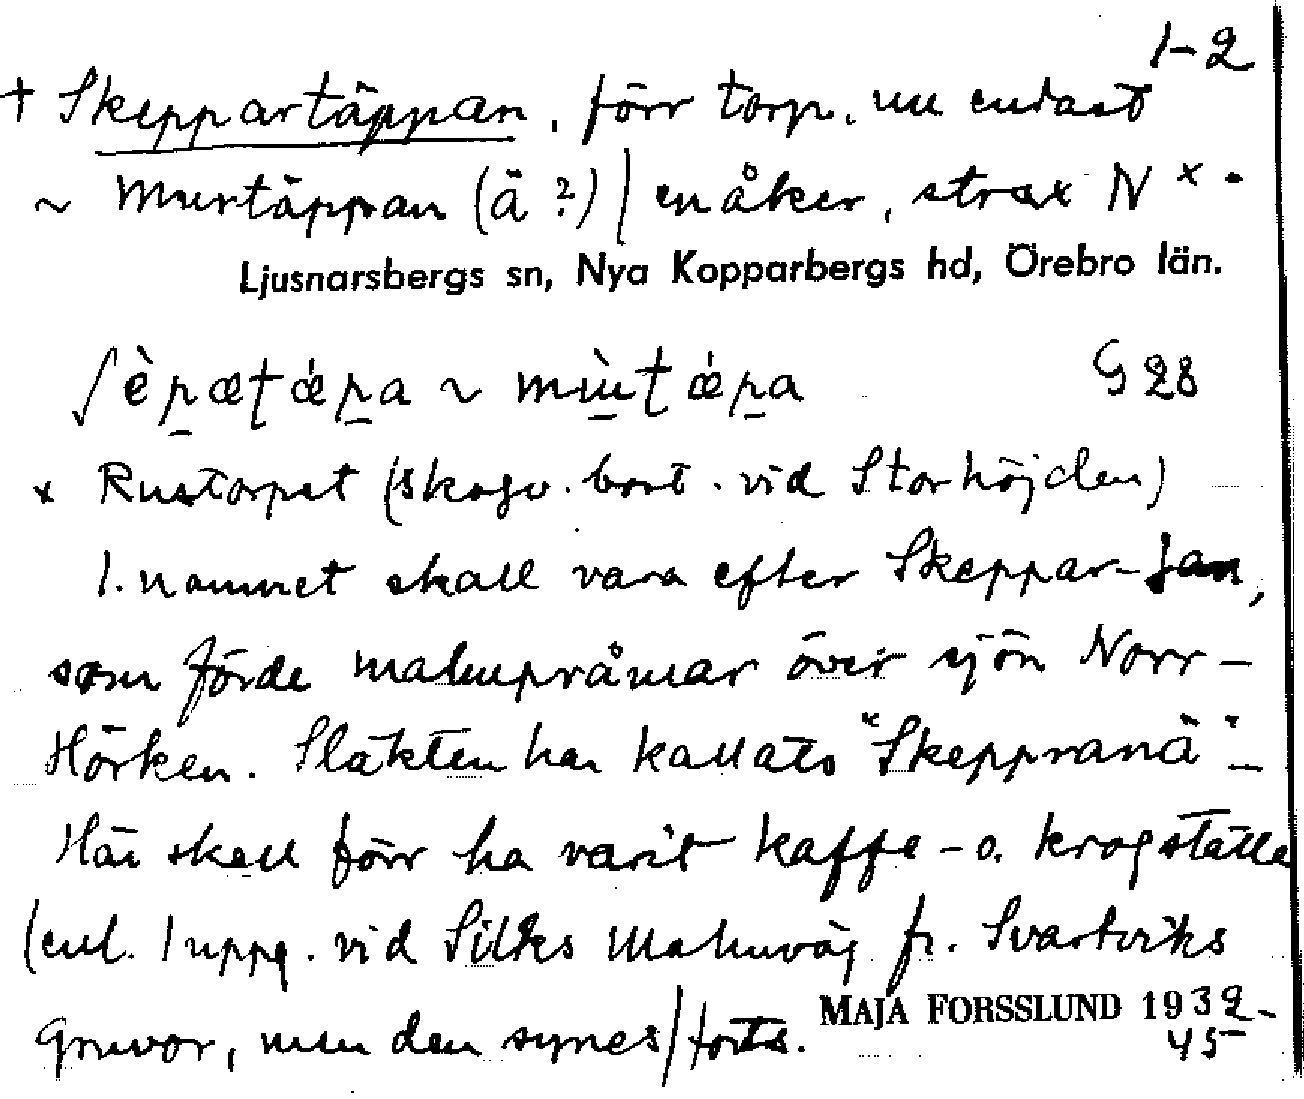 1-2
+ Skeppartäppan, förr torp, nu endast
~ Murtäppan (ä ?) / en åker, strax N x.
Ljusnarsbergs sn, Nya Kopparbergs hd, Örebro län.
G 28
x Rustorpet (skogv. bost. vid Storhöjden)
1. namnet skall vara efter Skeppar-Jan,
som förde malmpråmar över sjön Norr-
Hörken. Släkten har kallats "Skeppranä" –
Här skall förr ha varit kaffe- o. krogställe
(enl. 1 uppg. vid Silks Malmväg fr. Svartviks
gruvor, men den synes / forts.
MAJA FORSSLUND 1932-
45